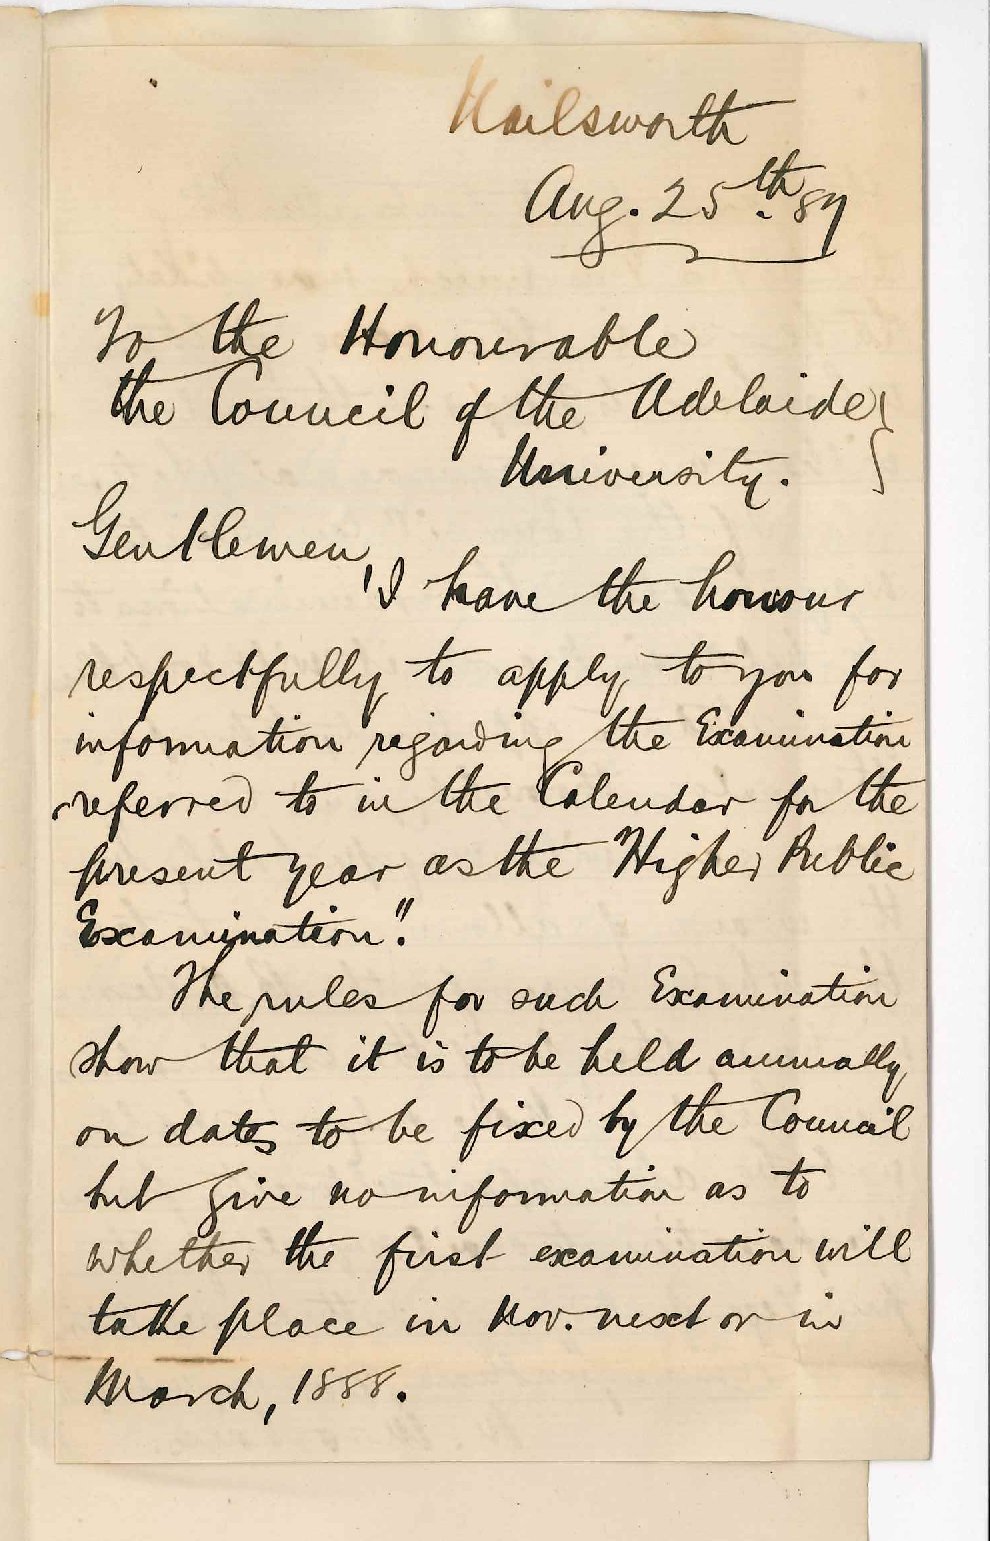 Nailsworth
Aug. 25th. 87
To the Honourable
the Council of the Adelaide
University.
Gentlemen,
I have the honour
respectfully to apply to you for
information regarding the Examination
referred to in the Calendar for the
present year as the "Higher Public
Examination".
The rules for such Examination
show that it is to be held annually
on dates to be fixed by the Council
but give no information as to
whether the first examination will
take place in Nov. next or in
March, 1888.